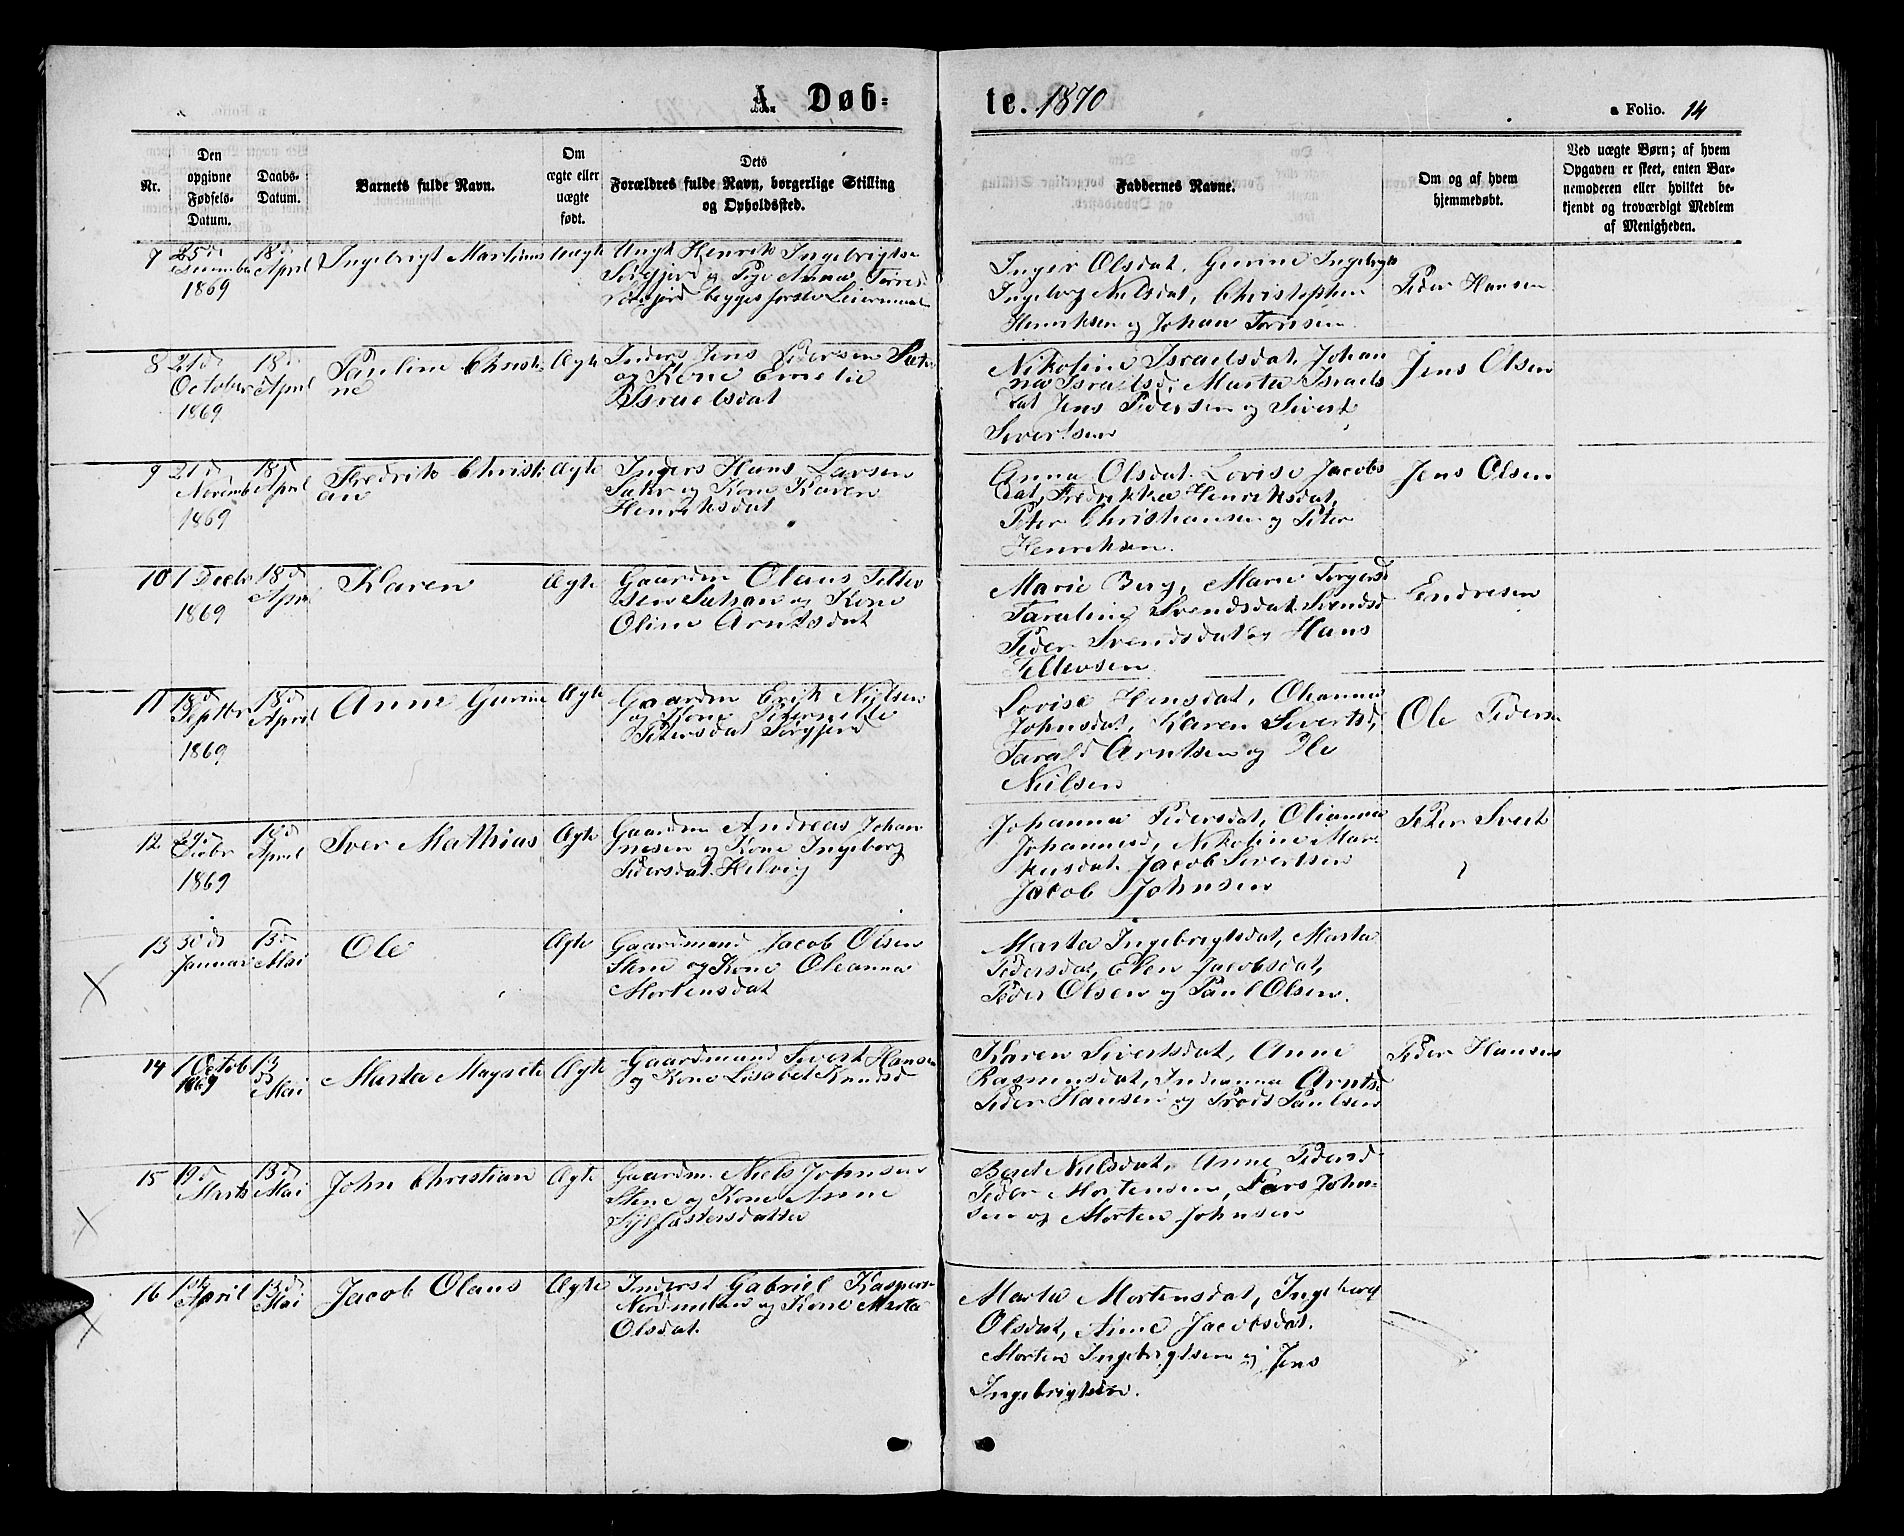 A. Døb-
te. 1870
a Folio. 14
Nr.
Den
opgivne
Fødsels-
Datum.
Daabs-
Datum.
Barnets fulde Navn.
Om
ægte eller
uægte
født.
Dets
Forældres fulde Navn, borgerlige Stilling
og Opholdssted.
Faddernes Navne.
Om og af hvem
hjemmedøbt.
Ved uægte Børn; af hvem
Opgaven er skeet, enten Bar-
nemoderen eller hvilket be-
kjendt og troværdigt Medlem
af Menigheden.
7
25 d
1869
18 d
April
Ingebrigt
Uægte
Ungk Henrik Ingebrigtsen
Sørgfjord og Pige Anna
begges første Leiermaal
Inger Olsdat, Gurine
Ingeborg Nielsdat, Christopher
Henriksen og Johan
Peder Hansen
8
21 d
October
1869
18 d
April
Pauline Christi
ne
Ægte
Inders Jens Pedersen
og Kone
Israelsdat
Nikoline Israelsdat. Johan
na Israelsd, Marta Israels
dat Jens Pedersen og Sivert
Sivertsen
Jens Olsen
9
21 d
Novemb
1869
18 d
April
Fredrik Christi
an
Ægte
Inders Hans Larsen
og Kone Karen
Henriksdat
Anna Olsdat. Lovise Jacobs
dat, Fredrikka Henriksdat,
Peter Christiansen og Peter
Henriksen
Jens Olsen
10
1 Decbr
1869
18 d
April
Karen
Ægte
Gaardm Olaus Tellef
sen og Kone
Oline Arntsdat
Marie Berg, Marie
Svendsdat
Peder Svendsdat og Hans
Tellefsen
Endresen
11
13 d
Septbr
1869
18 d
April
Anne Gurine
Ægte
Gaardm Erik Nielsen
og Kone
Petersdat Sørgfjord
Lovise
Johnsdat, Karen Sivertsd,
Arntsen og Ole
Nielsen
Ole Peders
12
29 d
1869
18 d
April
Iver Mathias
Ægte
Gaardm Andreas Johan
nesen og Kone Ingeborg
Pedersdat. Helvig
Johanna Pedersdat,
Johannesd, Nikoline Mar-
kusdat. Jacob Sivertsen
Jacob Johnsen
13
30 d
Januar
13 d
Mai
Ole
Ægte
Gaardmand Jacob Olsen
Stene og Kone Oleanna
Mortensdat
Marta Ingebrigtsdat, Marta
Pedersdat, Elen Jacobsdat,
Peder Olsen og Paul Olsen.
14
1 Octob
1869
13
d
Mai
Marta
Ægte
Gaardmand Sivert Hansen
og Kone Lisabet Knudsd
Karen Sivertsdat, Anne
Rasmusdat, Arntsd
Peder Hansen og Paulsen
Peder Hansen
15
19 d
Marts
13 d
Mai
John Christian
Ægte
Gaardm. Niels Johnsen
Stene og Kone Anne
Sylfastersdatter
Beret Nielsdat, Anne Pedersd
Peder Mortensen, Lars John-
sen og Morten Johnsen
16
April
13 d
Mai
Jacob Olaus
Ægte
Inderst Gabriel Kaspers
og Kone Marta
Olsdat.
Marta Mortensdat, Ingeborg
Olsdat, Anne Jacobsdat.
Morten Ingebrigtsen og Jens
Ingebrigtsen.